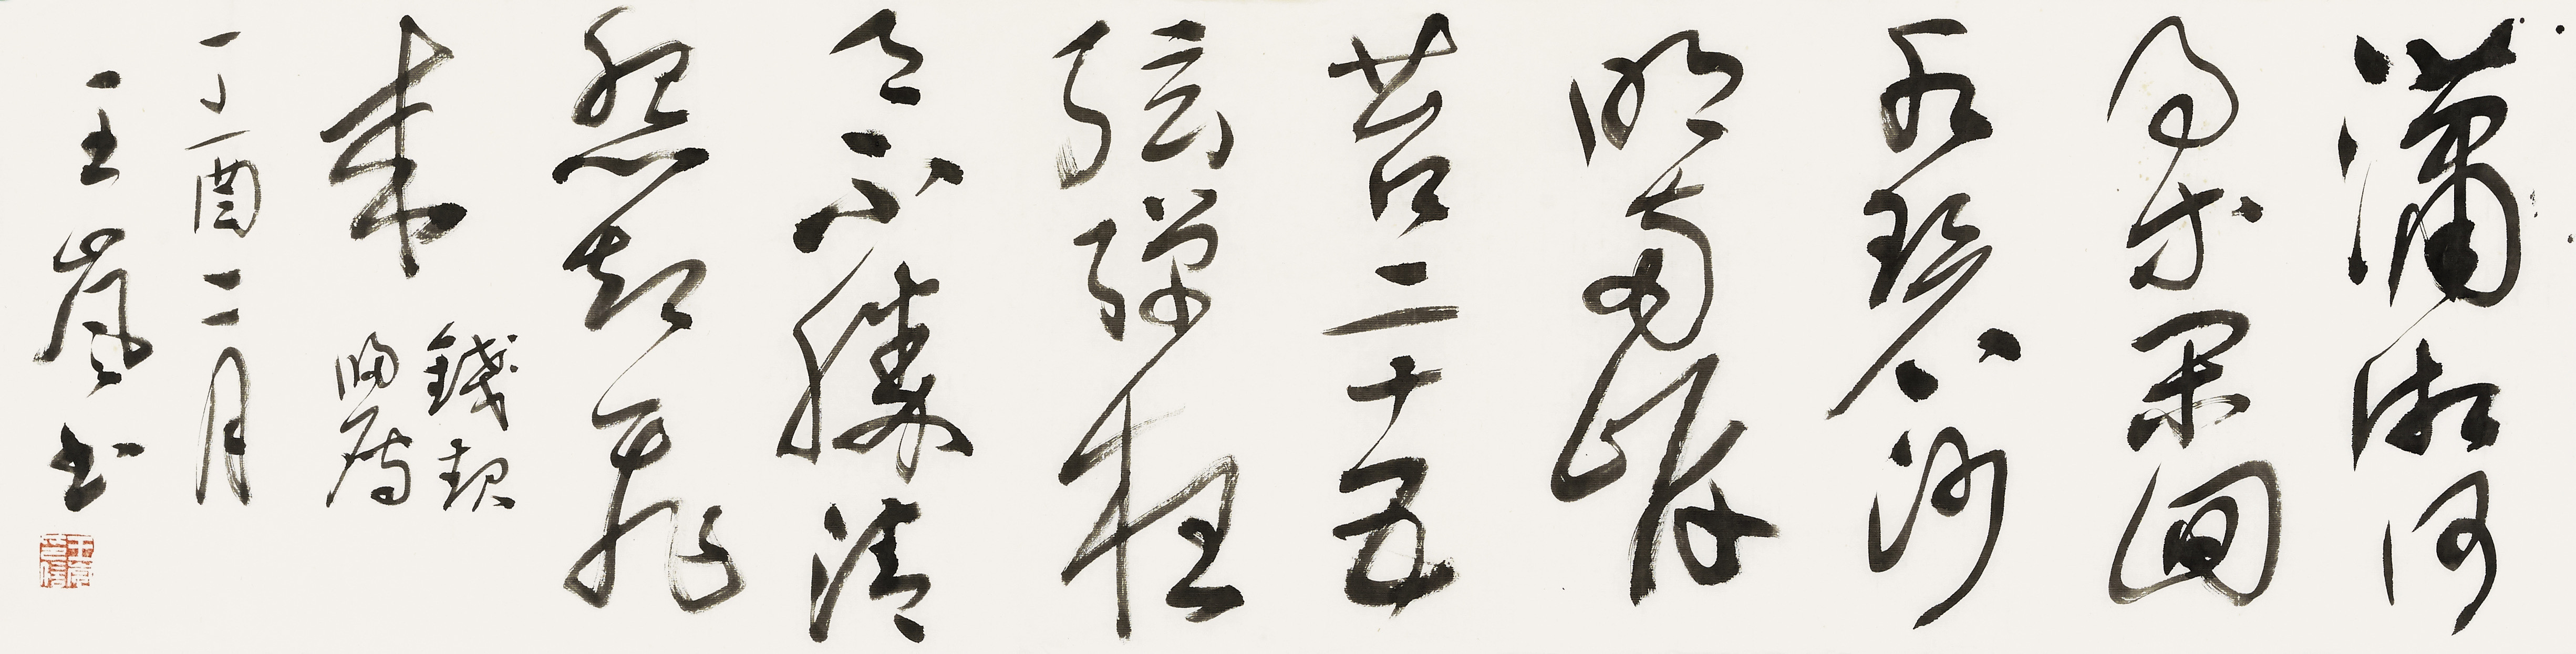 瀟湘何
事等閑迴
水碧沙
明兩岸
苔二十五
弦彈
不勝清
怨却飛
來
錢起
歸雁
丁酉二月
王嵐書